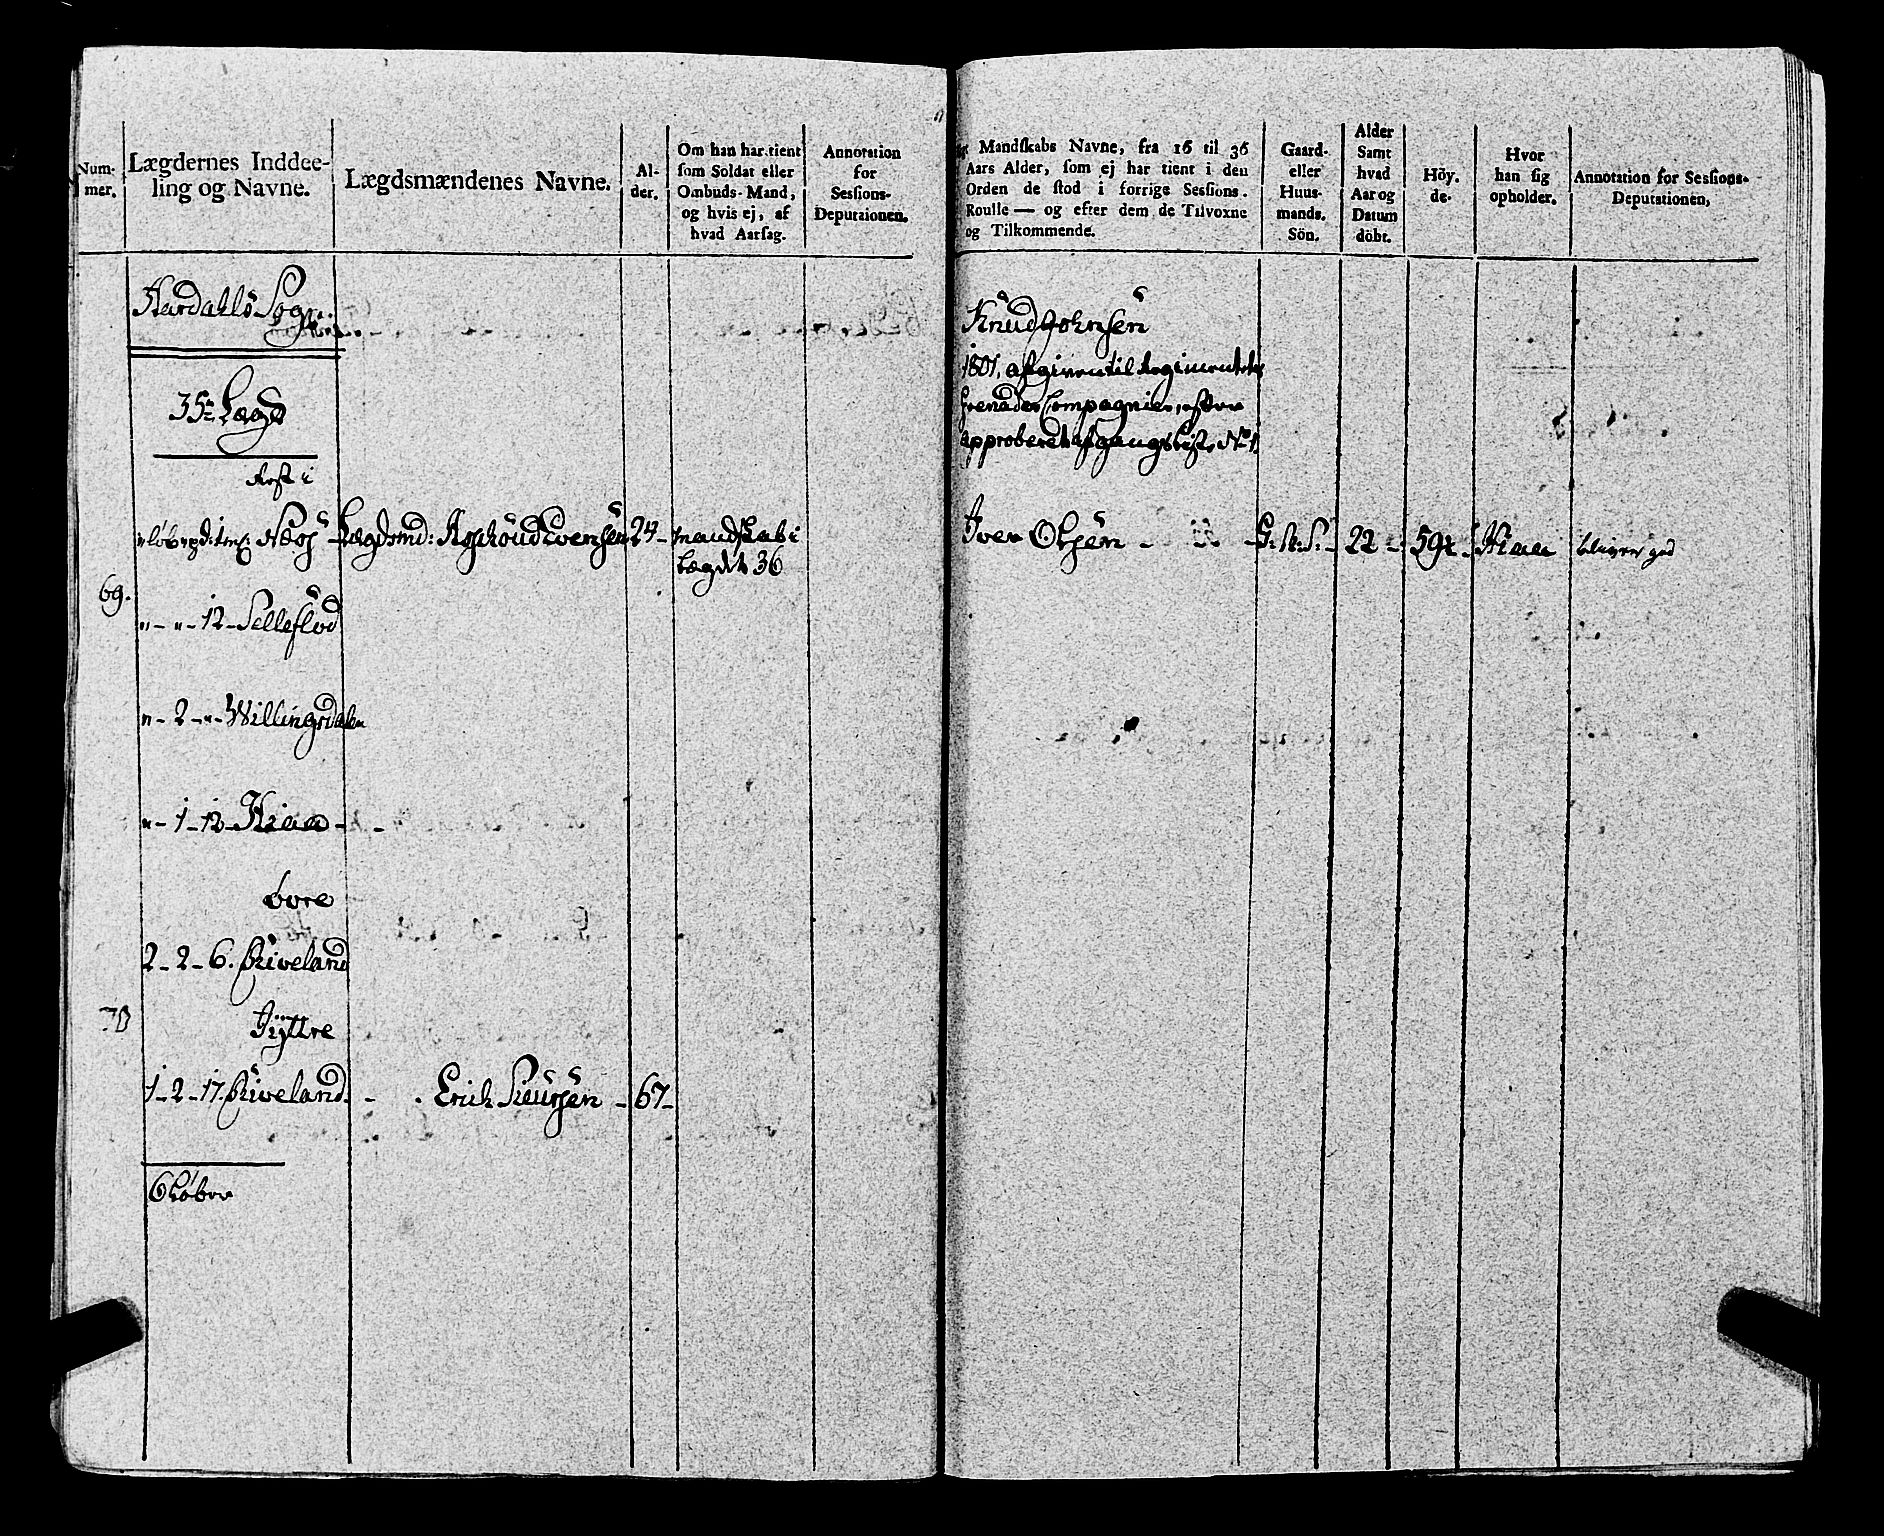 Num-
mer.
Lægdernes Inddee-
ling og Navne.
Lægdsmændenes Navne.
Al-
der.
Om han har tient
som Soldat eller
Ombuds-Mand,
og hvis ej, af
hvad Aarsag.
Annotation
for
Sessions-
Deputationen.
Hardahls Sogn
35te Lægd
Rest i
Næs - Lægdsmd: Aslout Evensen 24 - mandskab i
Lægdet 36
69.
" - " - 12 - Selleflod
" - 2 - " - Willingsdalen
" - 1 - 12 - Kiaa -
övre
2 - 2 - 6. Qviveland
70
Jÿttre
1 - 2 - 17. Qviveland - . Erich Siursen - 67 -
6 Løber
Mandskabs Navne, fra 16 til 36
Aars Alder, som ej har tient i den
Orden de stod i forrige Sessions-
Roulle — og efter dem de Tilvoxne
og Tilkommende.
Gaard-
eller
Huus-
mands-
Sön.
Alder
Samt
hvad
Aar og
Datum
döbt.
Höy-
de.
Hvor
han sig
opholder.
Annotation for Sessions-
Deputationen,
Knud Johnsen
1801, afgiven til Regimentets
Grenader Compagnie, efter
approberet afgangs Liste No 1.
Iver Olsen - G: R: S: - 22 - 59¼ - Kiaa